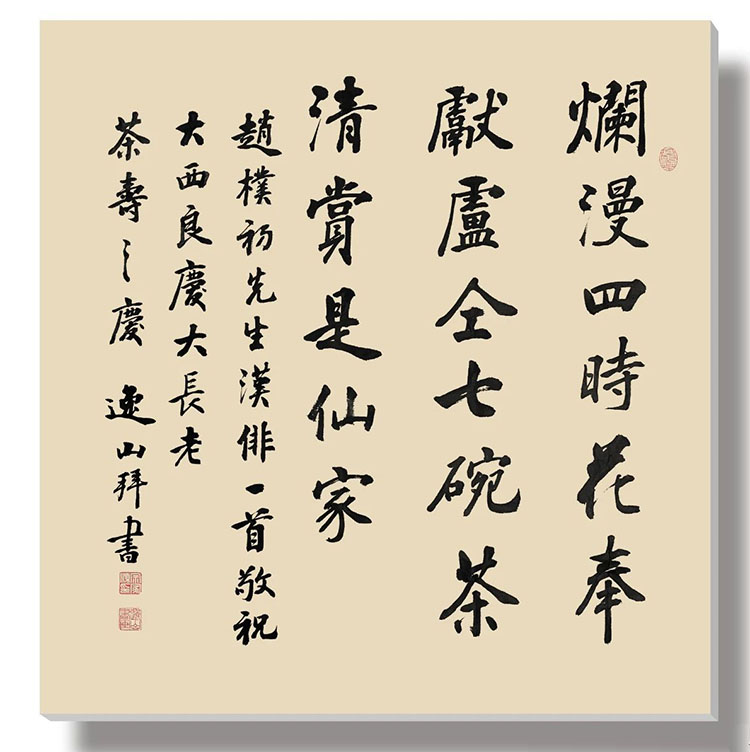 爛漫四時花奉
獻盧仝七碗茶
清賞是仙家
趙樸初先生漢俳一首敬祝
大西良慶大長老
茶壽之慶 逸山拜書